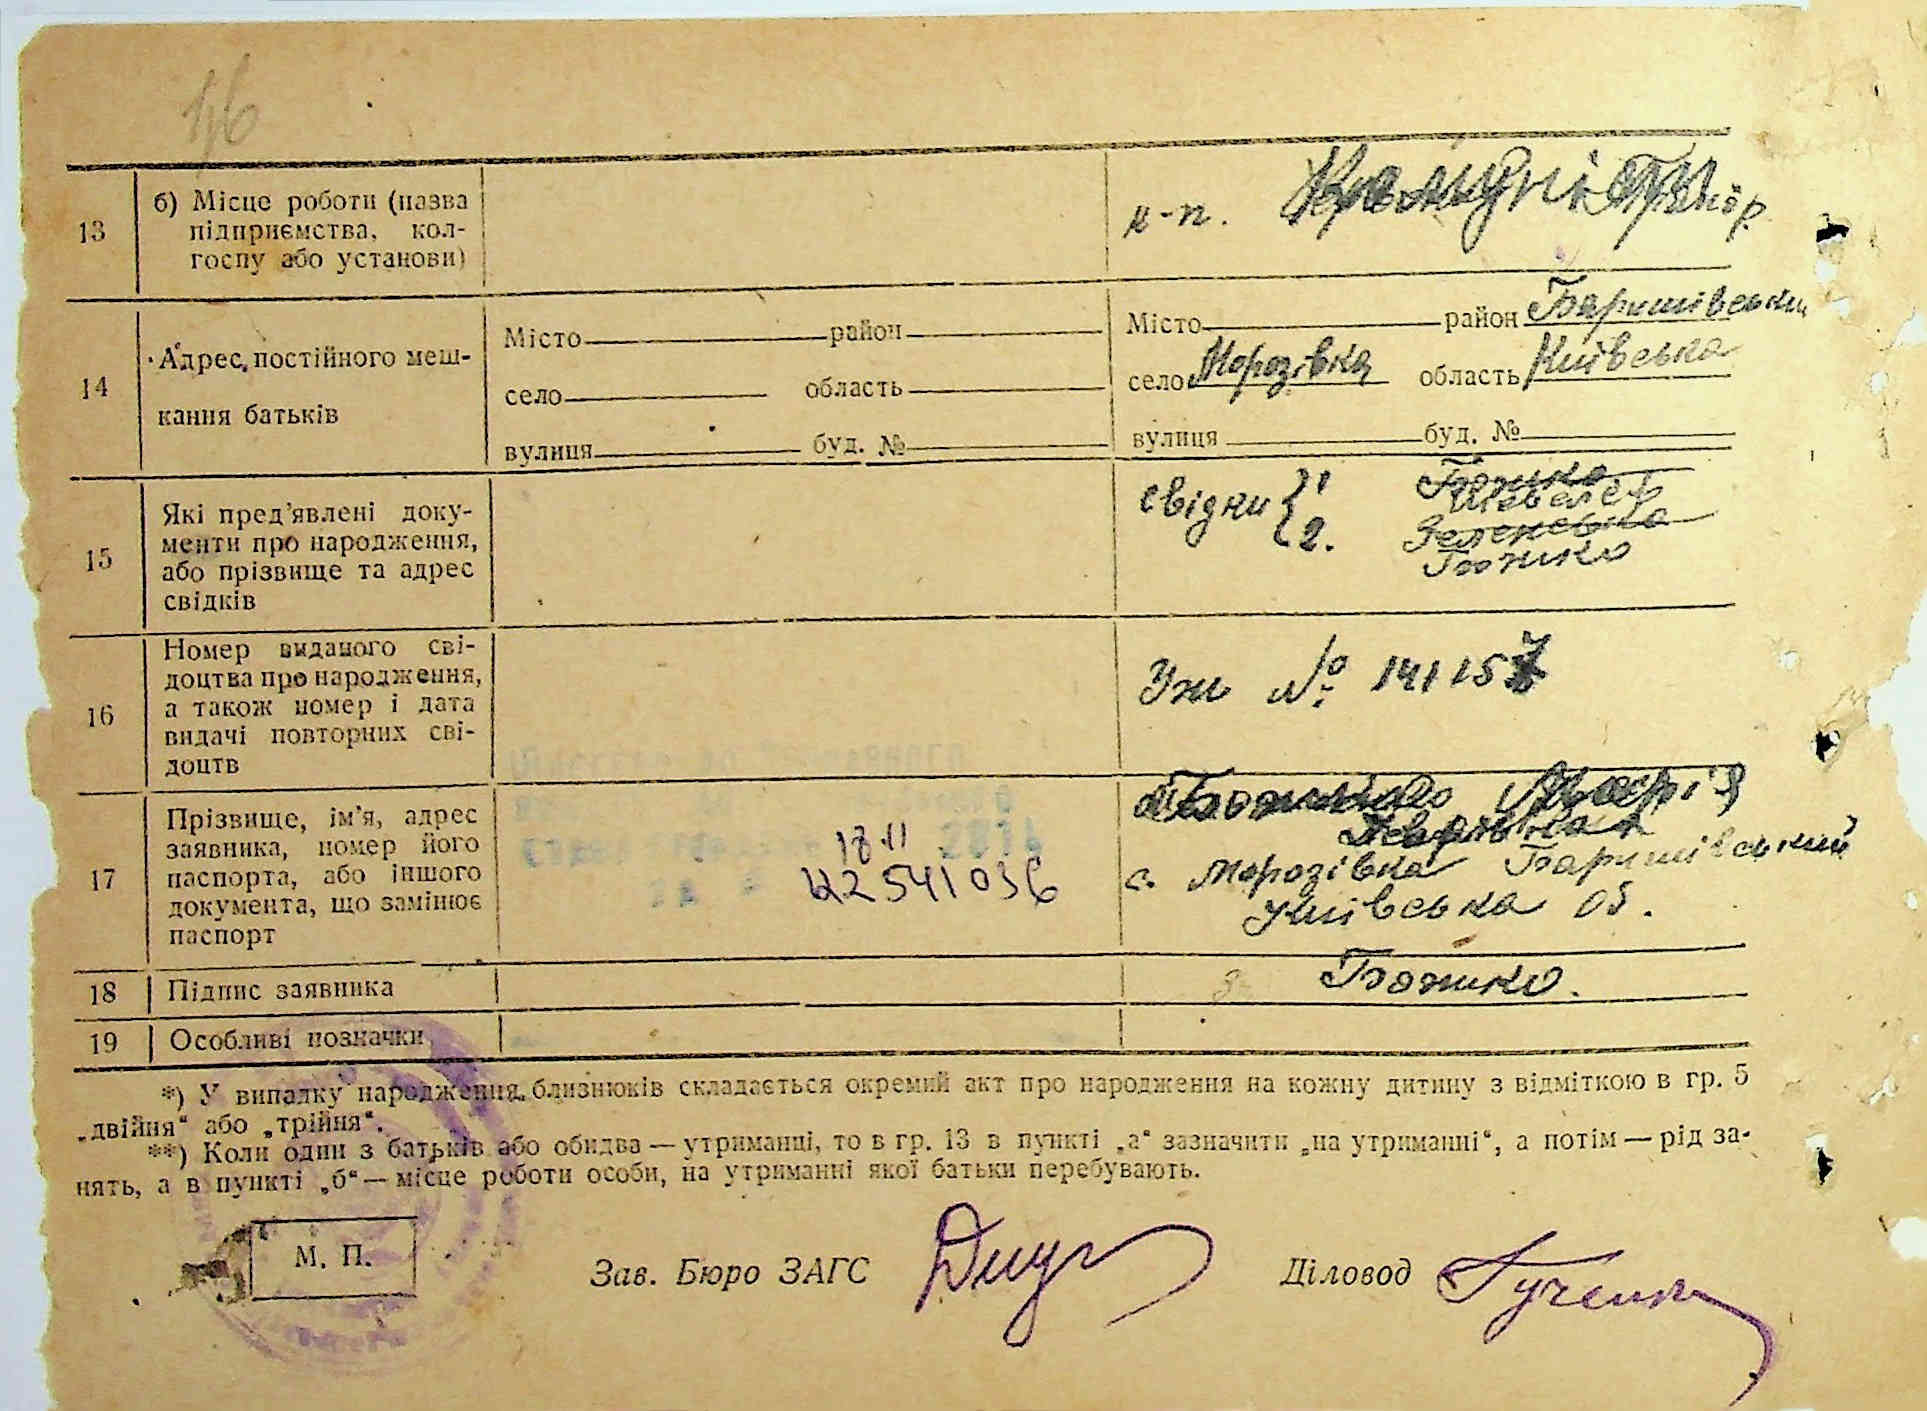 46
13
б) Місце роботи (назва
підприємства, кол-
госпу або установи)
к-п.
14
Адрес постійного меш-
кання батьків
Місто район
село область
вулиця буд. №
Місто район Баришівський
село Морозівка область Київська
вулиця буд. №
15
Які пред'явлені доку-
менти про народження,
або прізвище та адрес
свідків
свідки { 1
2.
Божко
Зеленська
Божко
16
Номер виданого сві-
доцтва про народження,
а також номер і дата
видачі повторних сві-
доцтв
Уж № 141157
17
Прізвище, ім'я, адрес
заявника, номер його
паспорта, або іншого
документа, що замінює
паспорт
2541036
с. Морозівка Баришівський
Київська об.
18
Підпис заявника
Божко.
19
Особливі позначки
*) У випадку народження близнюків складається окремий акт про народження на кожну дитину з відміткою в гр. 5
„двійня“ або „трійня“.
**) Коли один з батьків або обидва — утриманці, то в гр. 13 в пункті „а“ зазначити „на утриманні“, а потім — рід за-
нять, а в пункті „б“ — місце роботи особи, на утриманні якої батьки перебувають.
М. П.
Зав. Бюро ЗАГС
Діловод